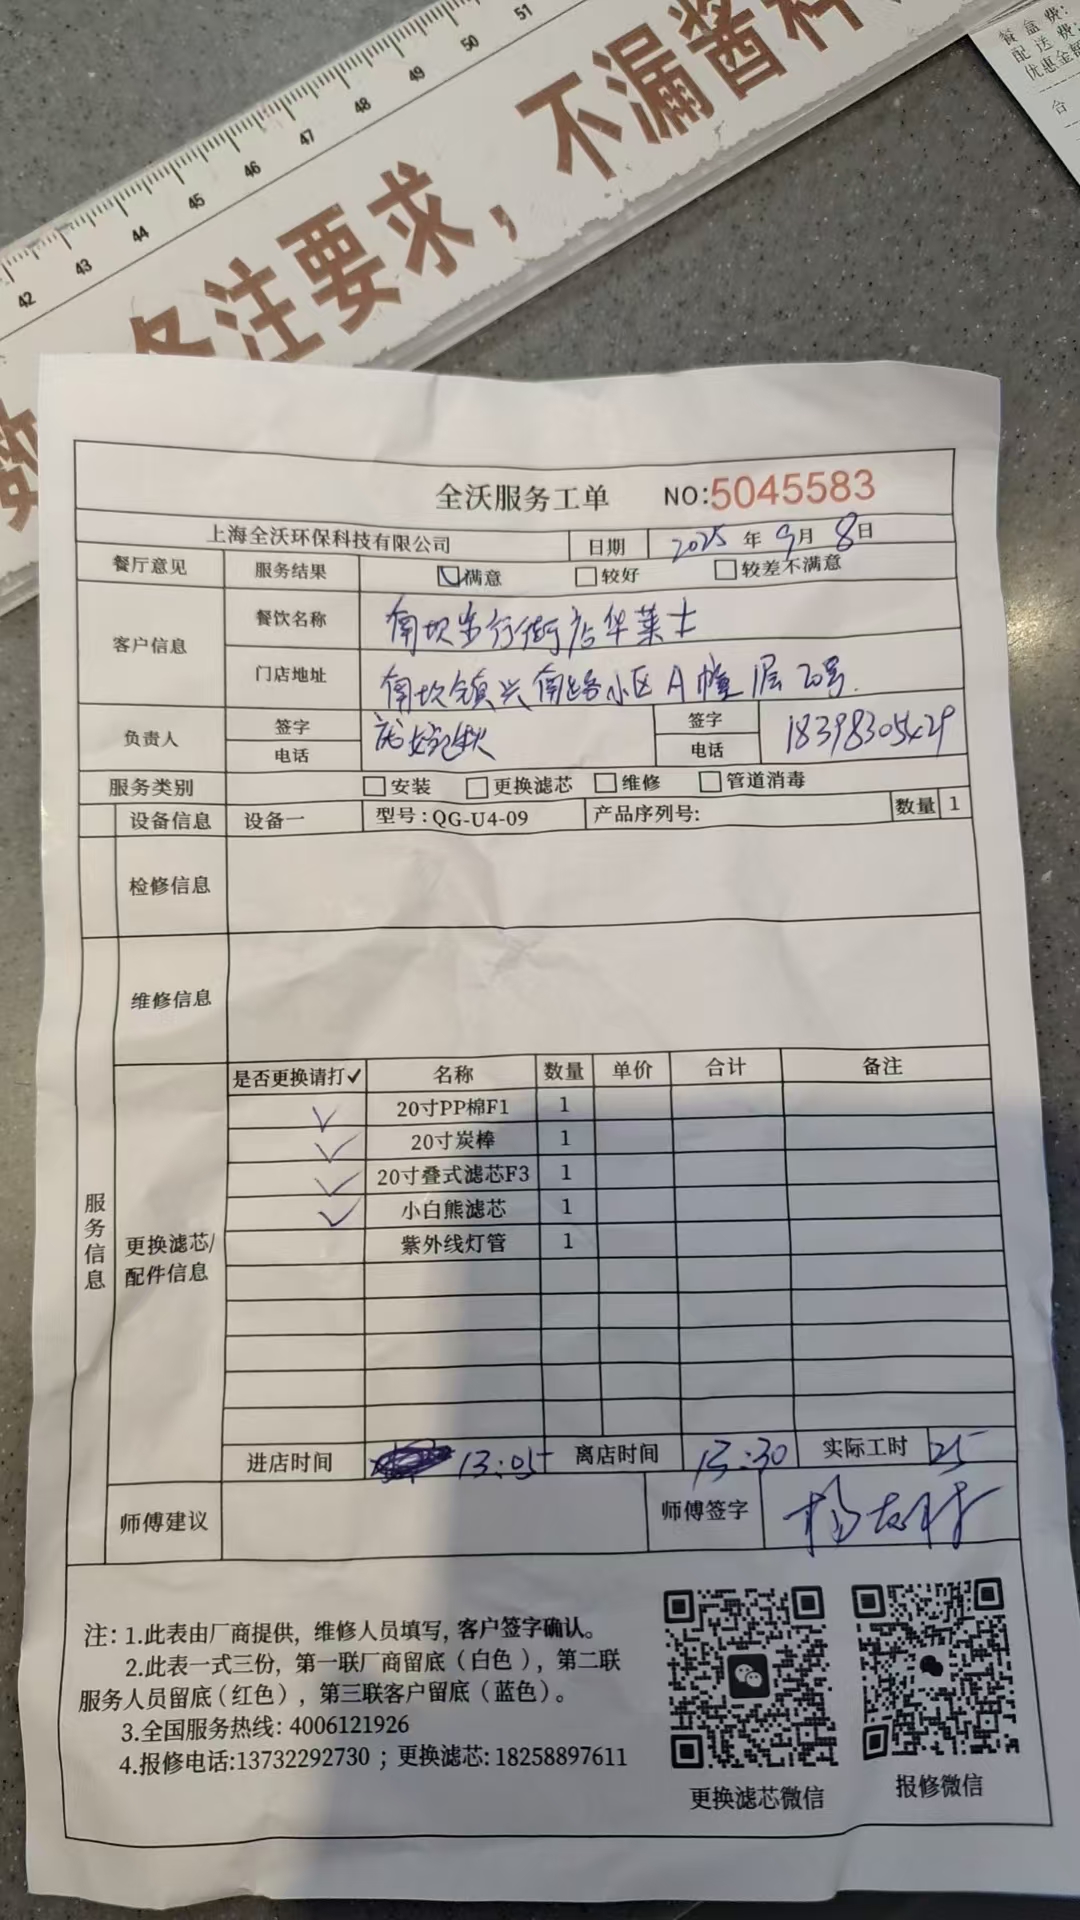 51
50
49
48
47
46
45
44
43
42
备注要求，不漏酱料
餐盒费:
配送费:
优惠金额
合
全沃服务工单 NO:5045583
上海全沃环保科技有限公司 日期 2025 年 9 月 8 日
餐厅意见 服务结果 ☑满意 □较好 □较差不满意
客户信息 餐饮名称 南坎步行街店华莱士
门店地址 南坎镇兴南路小区A幢1层20号
负责人 签字 签字
电话 电话 18398305429
服务类别 □安装 □更换滤芯 □维修 □管道消毒
设备信息 设备一 型号:QG-U4-09 产品序列号: 数量 1
检修信息
维修信息
服务信息
更换滤芯/配件信息
是否更换请打✓ 名称 数量 单价 合计 备注
✓ 20寸PP棉F1 1
✓ 20寸炭棒 1
✓ 20寸叠式滤芯F3 1
✓ 小白熊滤芯 1
紫外线灯管 1
进店时间 13:05 离店时间 13:30 实际工时 25
师傅建议 师傅签字
注: 1.此表由厂商提供, 维修人员填写, 客户签字确认。
2.此表一式三份, 第一联厂商留底(白色), 第二联
服务人员留底(红色), 第三联客户留底(蓝色)。
3.全国服务热线: 4006121926
4.报修电话:13732292730 ; 更换滤芯: 18258897611
更换滤芯微信 报修微信